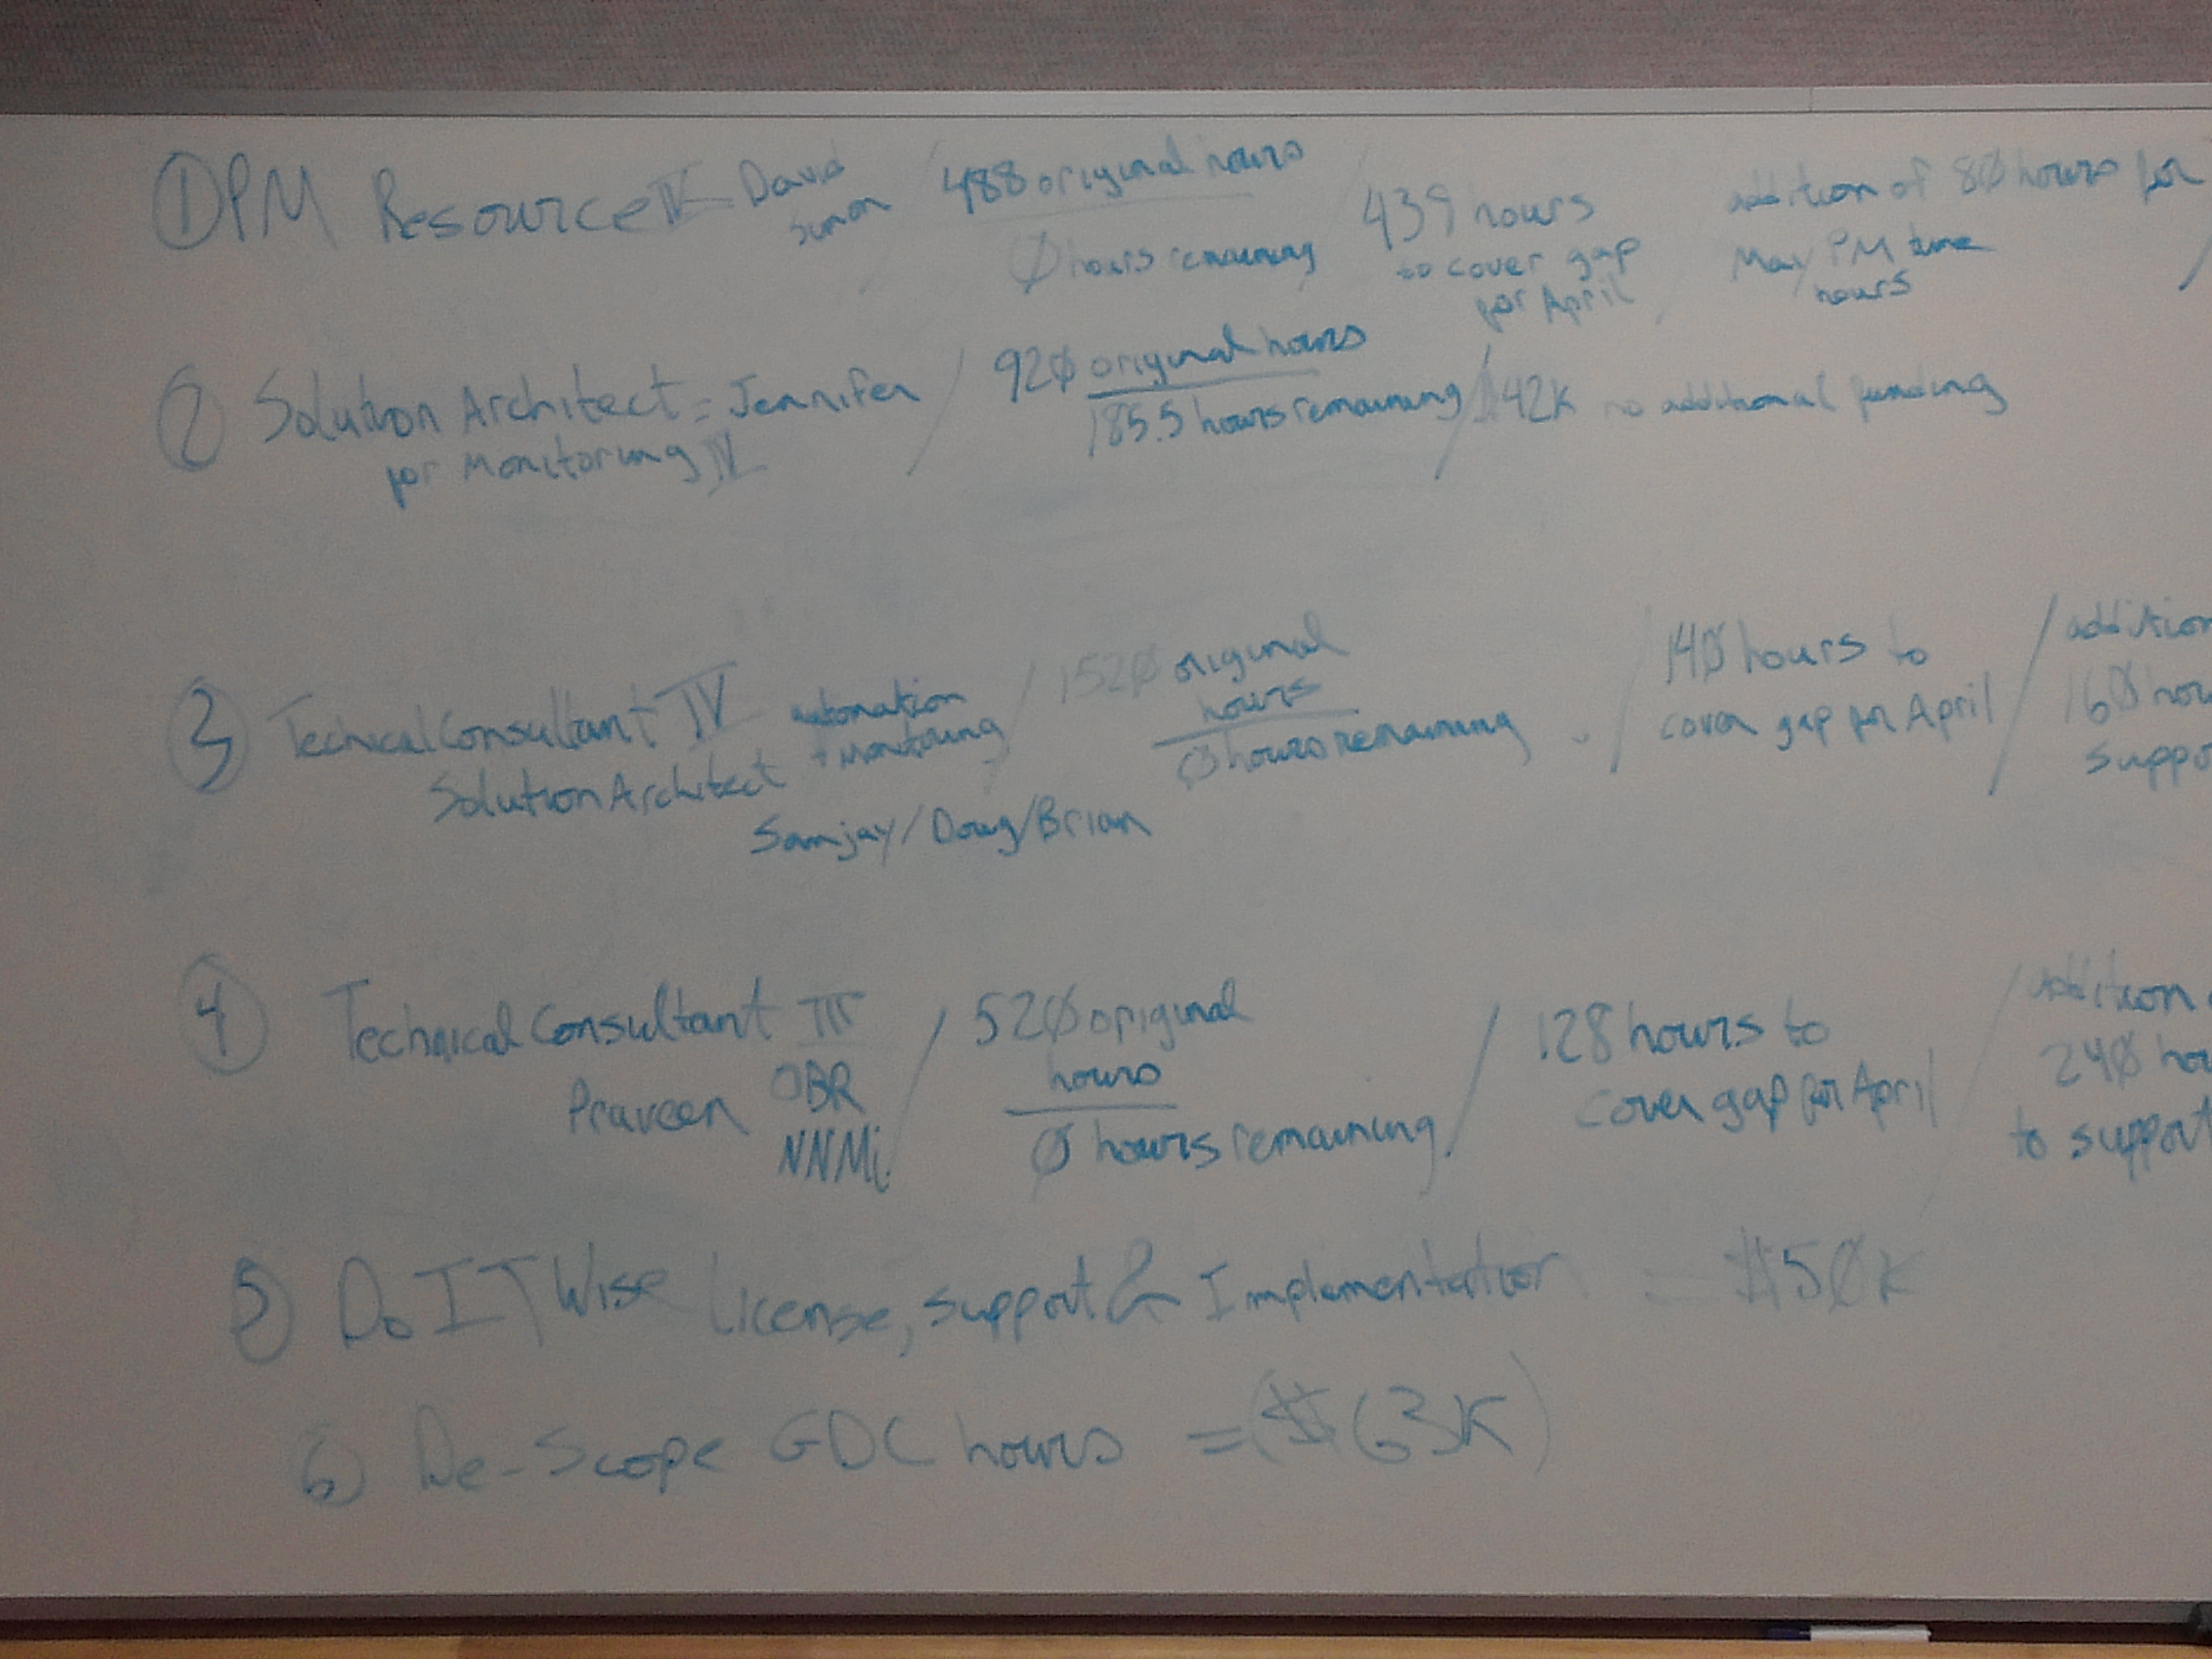 ① PM Resource IV David / 488 original hours / 439 hours addition of 80 hours for
Simon 0 hours remaining to cover gap May PM time
for April hours
② Solution Architect = Jennifer / 920 original hours / $42K no additional funding
for Monitoring IV 185.5 hours remaining
③ Technical Consultant IV automation / 1520 original / 140 hours to / addition
Solution Architect + Monitoring hours cover gap for April 160 hou
Samjay / Doug / Brian 0 hours remaining suppo
④ Technical Consultant III / 520 original / 128 hours to / addition
Praveen OBR hours cover gap for April 240 hou
NNMi 0 hours remaining to support
⑤ Do IT Wise License, support & Implementation = $50K
⑥ De-Scope GDC hours = ($63K)